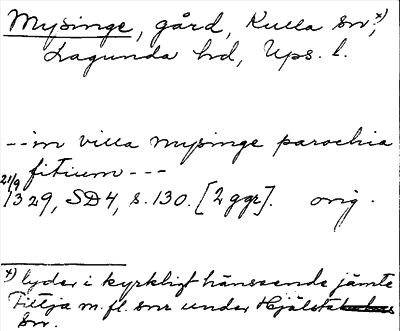 Mysinge, gård, Kulla sn x),
Lagunda hd, Ups. l.
--in villa mysinge parochia
fitium---
21/9
1329, SD4, s. 130. [2 ggr]. orig.
x) lyder i kyrkligt hänseende jämte
Fittja m. fl. snr under Hjälsta
sn.